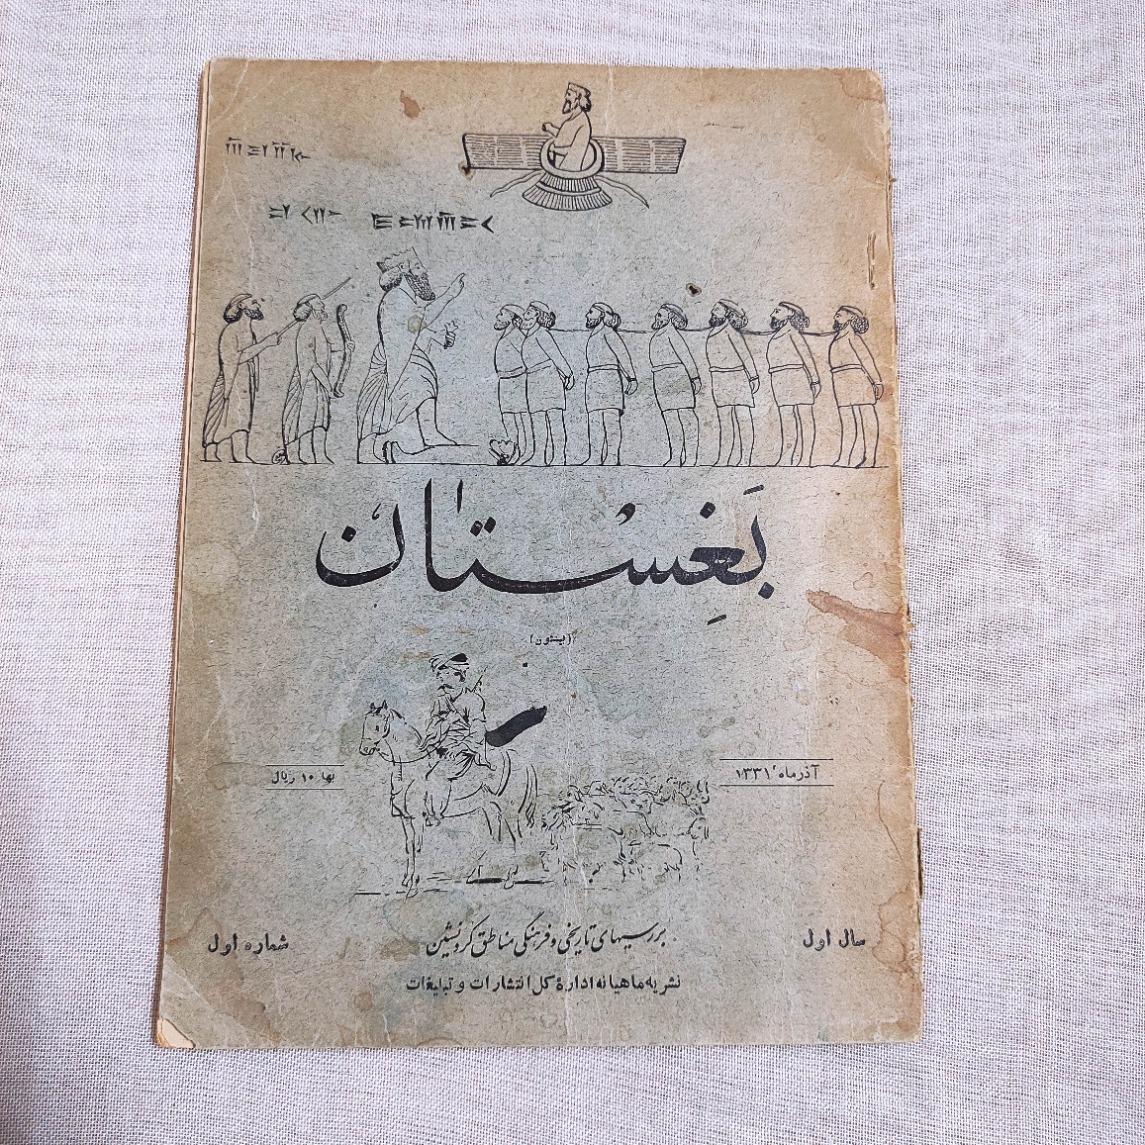 بَغِسْتٰان
(بیستون)
آذرماه ۱۳۳۱
بها ۱۰ ریال
سال اول
بررسیهای تاریخی و فرهنگی مناطق کردنشین
شماره اول
نشریه ماهیانه ادارهٔ کل انتشارات و تبلیغات